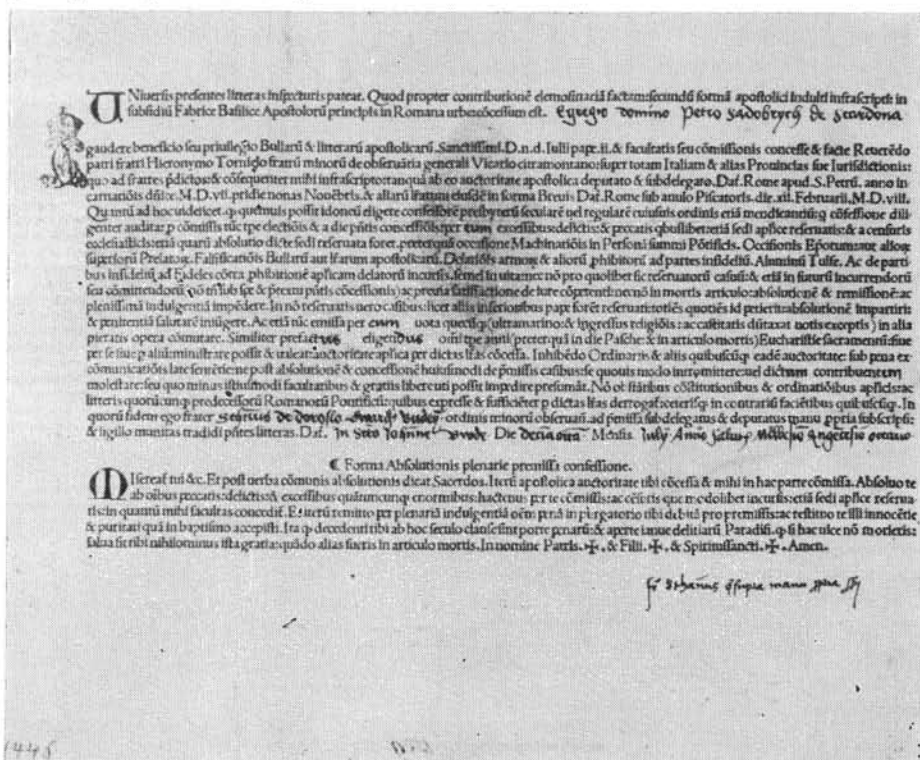 UNiuersis presentes litteras inspecturis pateat. Quod propter contributionē elemosinariā factam: secundū formā apostolici Indulti infrascripti: in
subsidiū Fabrice Basilice Apostolorū principis in Romana urbe cōcessum est. Egregio domino Petro de Scardona
gaudere beneficio seu priuilegio Bullarū & litterarū apostolicarū. Sanctissimi. D. n. d. Iulii pape. ii. & facultatis seu cōmissionis concesse & facte Reuerēdo
patri fratri Hieronymo Tornielo fratrū minorū de obseruātia generali Vicario citramontano: super totam Italiam & alias Prouincias sue Iurisdictionis:
quo ad fratres p̄dictos: & cōsequenter mihi infrascripto: tanquā ab eo auctoritate apostolica deputato & subdelegato. Dat. Rome apud. S. Petrū. anno in
carnatiōis dn̄ice. M. D. vii. pridie nonas Nouēbris. & aliarū lr̄arum eiusdē in forma Breuis Dat. Rome sub anulo Piscatoris. die. xii. Februarii. M. D. viii.
Quantū ad hoc uidelicet. q̄ quāmuis possit idoneū eligere confessorē presbyterū secularē uel regularē cuiusuis ordinis etiā mendicantiū: q̄ cōfessione dili-
genter audita: p̄ cōmissis tūc tpe electiōis & a die p̄n̄tis concessiōis: per eum excessibus: delictis: & peccatis q̄buslibet: etiā sedi aplice reseruatis: & a censuris
ecclesiasticis: etiā quarū absolutio dicte sedi reseruata foret. preterquā occasione Machinatiōis in Personā summi Pōtificis. Occisionis Ep̄orum: aut alioȝ
superiorū Prelatoȝ. Falsificatiōis Bullarū aut lr̄arum apostolicarū. Delatiōis armoȝ & aliorū ꝓhibitorū ad partes infideliū. Aluminū Tulfe. Ac de parti-
bus infideliū ad Fideles cōtra ꝓhibitionē aplicam delatorū incursis. semel in uita: nec nō pro quolibet sic reseruatorū casuū: & etiā in futurū incurrendorū
seu cōmittendorū
plenissimā indulgentiā impēdere. In nō reseruatis uero casibus: licet aliis inferioribus pape forēt reseruati: totiēs quotiēs id petierit: absolutionē impartiri:
& penitentiā salutarē iniūgere. Ac etiā tūc emissa per eum uota quecūq̄ (ultramarino: & ingressus religiōis: ac castitatis dūtaxat uotis exceptis) in alia
pietatis opera cōmutare. Similiter prefactus eligendus oīni tpe anni (preterquā in die Pasche: & in articulo mortis) Eucharistie sacramentū: siue
per se siue: p̄ aliū: ministrare possit & ualeat: auctoritate aplica per dictas lr̄as cōcessa. Inhibēdo Ordinariis & aliis quibuscūq̄: eadē auctoritate: sub pena ex
cōmunicatiōis late sentētie: ne post absolutionē & concessionē huiusmodi de p̄missis casibus: se quouis modo intromittere: uel dictum contribuentem
molestare: seu quo minus istiusmodi facultatibus & gratiis libere uti possit impedire presumāt. Nō obstātibus cōstitutionibus & ordinatiōibus aplicis: ac
litteris quorūcunq̄ predecessorū Romanorū Pontificū: quibus expresse & sufficiēter p̄ dictas lr̄as derogat: ceterisq̄ in contrariū faciētibus quibuscūq̄. In
quorū fidem ego frater de ordinis minorū obseruan̄. ad p̄missa subdelegatus & deputatus manu ꝓpria subscripsi:
& sigillo munitas tradidi p̄n̄tes litteras. Dat. in Scto Joanne Die Mensis. Iulij Anni
¶ Forma Absolutionis plenarie premissa confessione.
MIsereat̄ tui &c. Et post uerba cōmunis absolutionis dicat Sacerdos. Iterū apostolica auctoritate tibi cōcessa & mihi in hac parte cōmissa. Absoluo te
ab oībus peccatis: delictis: & excessibus quātuncunq̄ enormibus: hactenus per te cōmissis: ac cēsuris quomodolibet incursis: etiā sedi aplice reserua
tis: in quantū mihi facultas concedit̄. Et iterū remitto per plenariā indulgentiā oēm penā in purgatorio tibi debitā pro premissis: ac restituo te illi innocētie
& puritati quā in baptismo accepisti. Ita q̄ decedenti tibi ab hoc seculo clause sint porte penarū: & aperte ianue delitiarū Paradisi. q̄ si hac uice nō morieris:
salua sit tibi nihilominus ista gratia: quādo alias fueris in articulo mortis. In nomine Patris. ✠. & Filii. ✠. & Spiritussancti. ✠. Amen.
qͥ supra manu ꝓpria